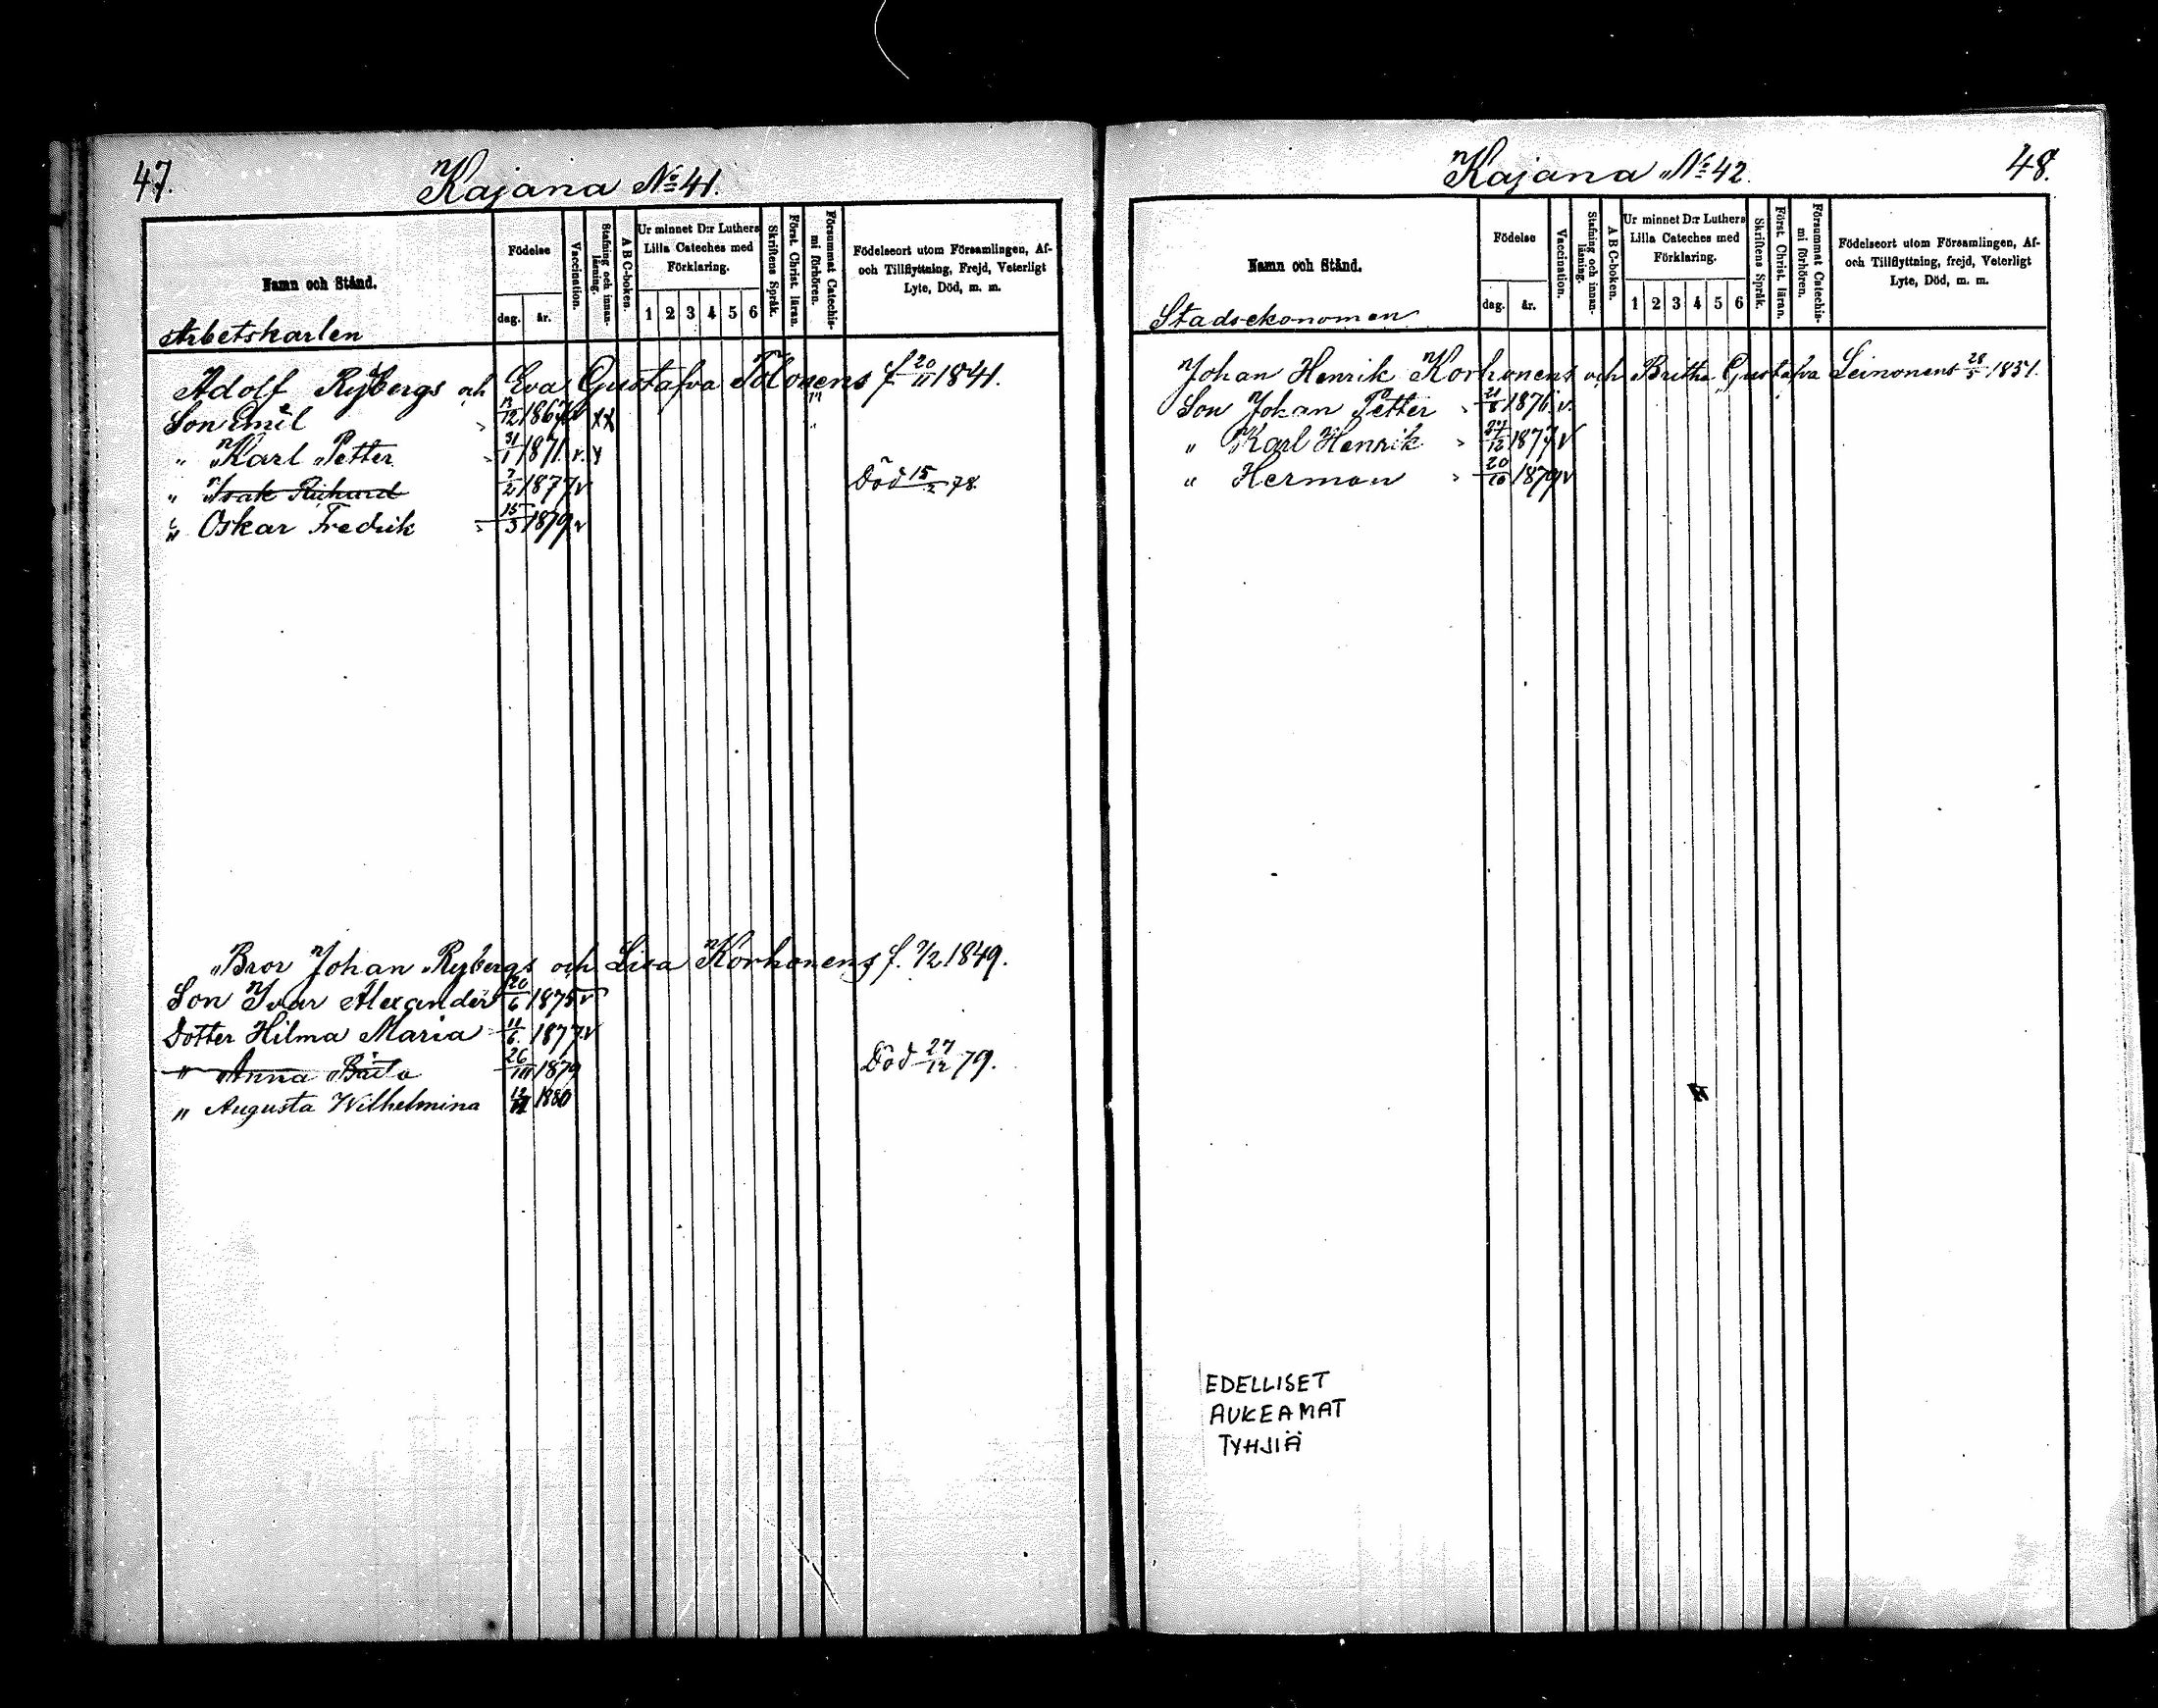 47.
Kajana No 41.
Namn och Stånd.
Födelse
dag. år.
Vaccination.
Stafning och innanläsning.
A B C-boken.
Ur minnet D:r Luthers
Lilla Cateches med
Förklaring.
1 2 3 4 5 6
Skriftens Språk.
Först. Christ. läran.
Försummat Catechismi förhören.
Födelseort utom Församlingen, Af-
och Tillflyttning, Frejd, Veterligt
Lyte, Död, m. m.
Arbetskarlen
Adolf Rybergs och Eva Gustafva Tolonens f 20/11 1841.
Son Emil 13/12 1867 v xx
" Karl Petter 31/1 1871. v. x
" Isak Richard 2/2 1877 v Död 15/2 78.
" Oskar Fredrik 15/3 1879 v
Bror Johan Rybergs och Lisa Korhonens f. 7/2 1849.
Son Ivar Alexander 20/6 1875 v
Dotter Hilma Maria 11/6 1877 v
" Anna Brita 26/11 1879 Död 27/12 79.
" Augusta Wilhelmina 12/11 1880
48.
Kajana No 42.
Namn och Stånd.
Födelse
dag. år.
Vaccination.
Stafning och innanläsning.
A B C-boken.
Ur minnet D:r Luthers
Lilla Cateches med
Förklaring.
1 2 3 4 5 6
Skriftens Språk.
Först. Christ. läran.
Försummat Catechismi förhören.
Födelseort utom Församlingen, Af-
och Tillflyttning, frejd, Veterligt
Lyte, Död, m. m.
Stadsekonomen
Johan Henrik Korhonens och Britha Gustafva Leinonens 28/5 1851.
Son Johan Petter 21/8 1876. v.
" Karl Henrik 27/12 1877 v
" Herman 20/10 1879 v
EDELLISET
AUKEAMAT
TYHJIÄ